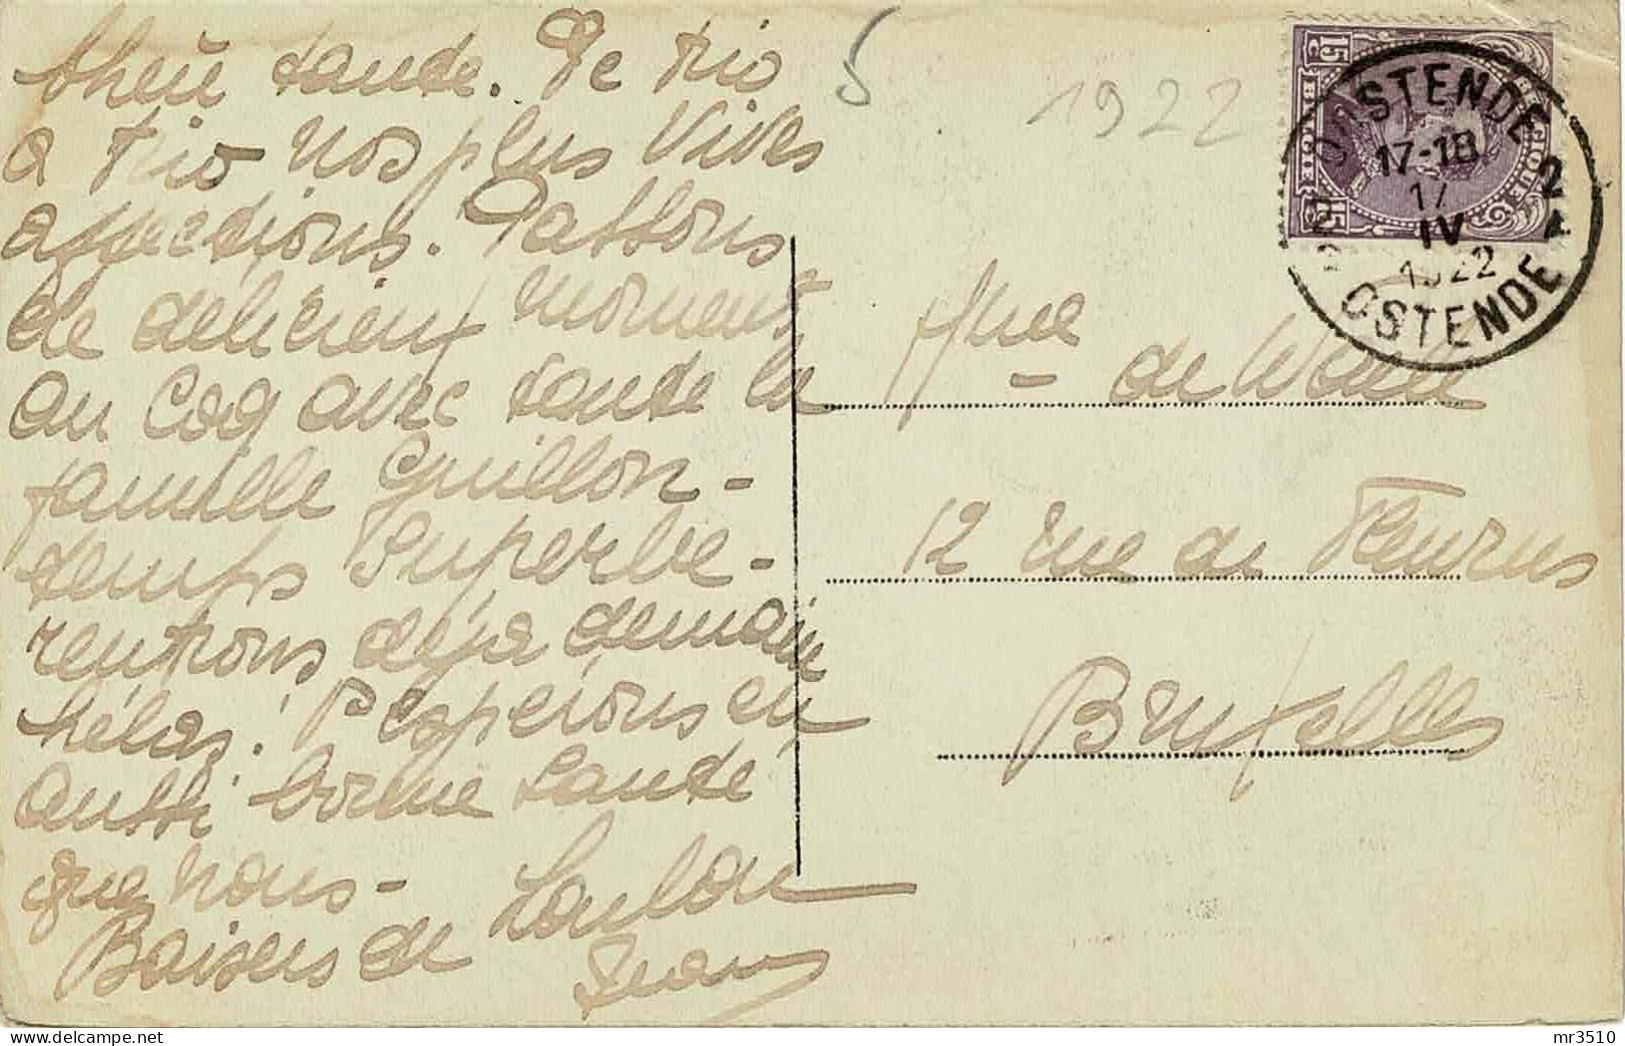 tante. De trio
a trio nos plus vives
affections. Passons
de délicieux moments
au Coq avec tante la
famille Guillon -
temps superbe -
rentrons déjà demain
hélas! Espérons en
aussi bonne santé
que nous -
Baisers de Loulou
Jean
5
1922
15 C BELGIE
BELGIQUE 15 C
OOSTENDE 2
17-18
17
IV
1922
OSTENDE
Mme de
12 rue de Fleurus
Bruxelles
mr3510